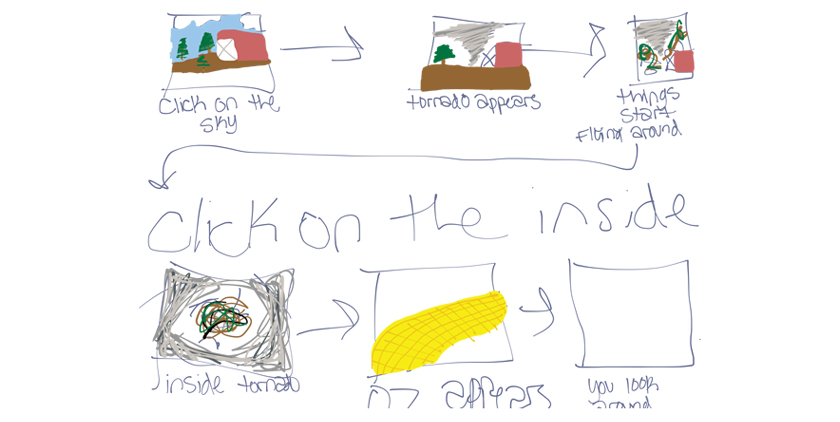 click on the
sky
tornado appears
things
start
flying around
click on the inside
inside tornado
OZ appears
you look
around